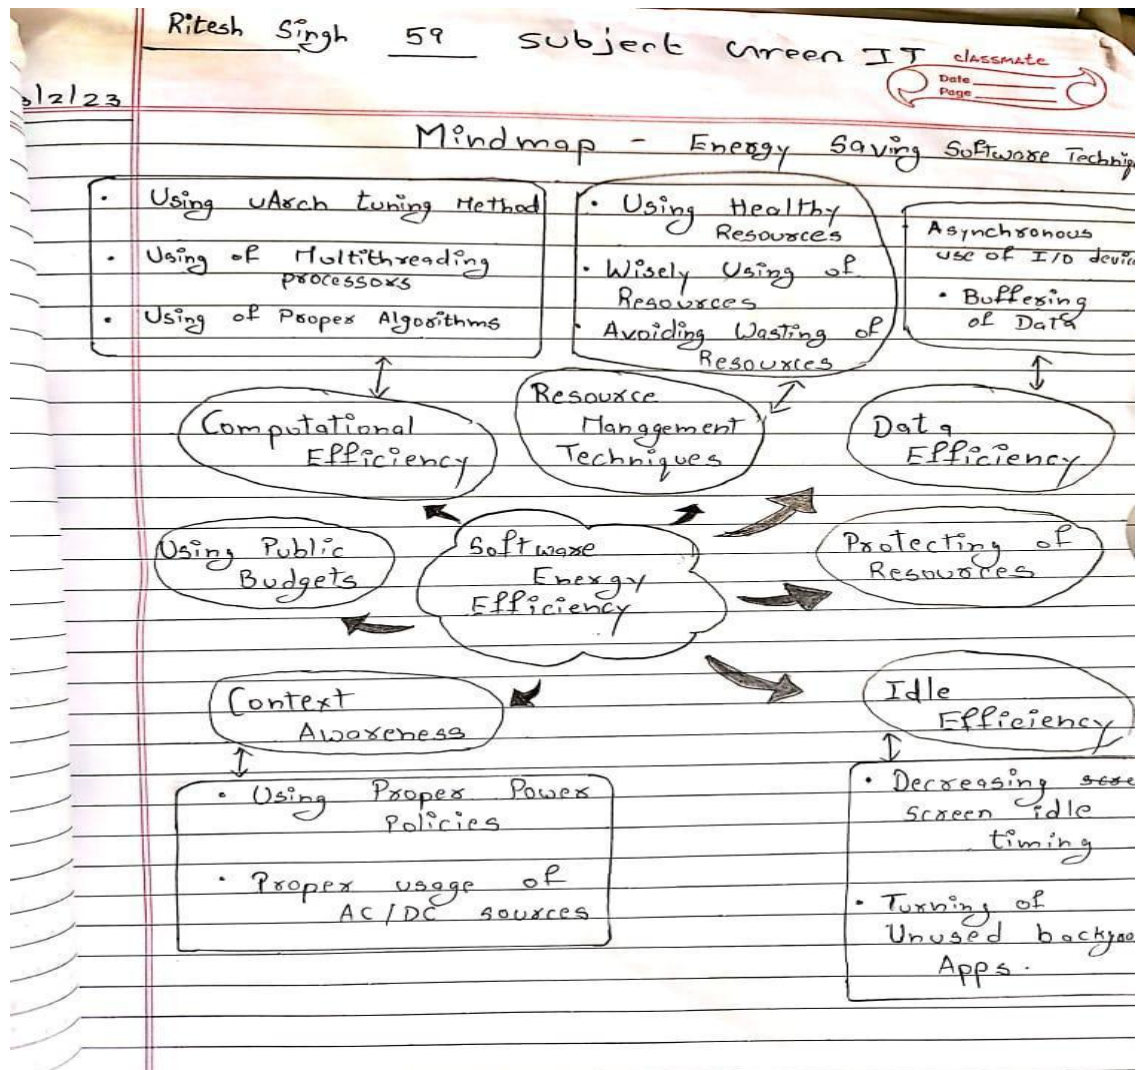 Ritesh Singh 59 Subject Green IT
classmate
Date
Page
/2/23
Mindmap - Energy Saving Software
• Using uArch tuning Method
• Using of Multithreading
processors
• Using of Proper Algorithms
• Using Healthy
Resources
• Wisely Using of
Resources
• Avoiding Wasting of
Resources
Asynchronous
use of I/O
• Buffering
of Data
Computational
Efficiency
Resource
Management
Techniques
Data
Efficiency
Using Public
Budgets
Software
Energy
Efficiency
Protecting of
Resources
Context
Awareness
Idle
Efficiency
• Using Proper Power
Policies
• Proper usage of
AC/DC sources
• Decreasing
screen idle
timing
• Turning of
Unused
Apps.